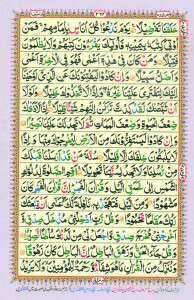 خَلَقْنَا تَفْضِيلًا ۝ يَوْمَ نَدْعُوا كُلَّ أُنَاسٍ بِإِمَامِهِمْ فَمَنْ
أُوتِيَ كِتٰبَهُ بِيَمِينِهِ فَأُولٰئِكَ يَقْرَءُونَ كِتٰبَهُمْ وَلَا يُظْلَمُونَ
فَتِيلًا ۝ وَمَنْ كَانَ فِي هٰذِهِ أَعْمٰى فَهُوَ فِي الْاٰخِرَةِ أَعْمٰى
وَأَضَلُّ سَبِيلًا ۝ وَإِنْ كَادُوا لَيَفْتِنُونَكَ عَنِ الَّذِي أَوْحَيْنَا
إِلَيْكَ لِتَفْتَرِيَ عَلَيْنَا غَيْرَهُ وَإِذًا لَّاتَّخَذُوكَ خَلِيلًا ۝ وَلَوْلَا
أَنْ ثَبَّتْنٰكَ لَقَدْ كِدْتَّ تَرْكَنُ إِلَيْهِمْ شَيْئًا قَلِيلًا ۝ إِذًا لَّأَذَقْنٰكَ
ضِعْفَ الْحَيٰوةِ وَضِعْفَ الْمَمَاتِ ثُمَّ لَا تَجِدُ لَكَ عَلَيْنَا نَصِيرًا ۝
وَإِنْ كَادُوا لَيَسْتَفِزُّونَكَ مِنَ الْأَرْضِ لِيُخْرِجُوكَ مِنْهَا وَإِذًا
لَّا يَلْبَثُونَ خِلٰفَكَ إِلَّا قَلِيلًا ۝ سُنَّةَ مَنْ قَدْ أَرْسَلْنَا قَبْلَكَ
مِنْ رُّسُلِنَا وَلَا تَجِدُ لِسُنَّتِنَا تَحْوِيلًا ۝ أَقِمِ الصَّلٰوةَ لِدُلُوكِ
الشَّمْسِ إِلٰى غَسَقِ الَّيْلِ وَقُرْاٰنَ الْفَجْرِ إِنَّ قُرْاٰنَ الْفَجْرِ كَانَ
مَشْهُودًا ۝ وَمِنَ الَّيْلِ فَتَهَجَّدْ بِهِ نَافِلَةً لَّكَ عَسٰى أَنْ يَبْعَثَكَ
رَبُّكَ مَقَامًا مَّحْمُودًا ۝ وَقُلْ رَّبِّ أَدْخِلْنِي مُدْخَلَ صِدْقٍ وَّ
أَخْرِجْنِي مُخْرَجَ صِدْقٍ وَّاجْعَلْ لِّي مِنْ لَّدُنْكَ سُلْطٰنًا نَّصِيرًا ۝
وَقُلْ جَاءَ الْحَقُّ وَزَهَقَ الْبَاطِلُ إِنَّ الْبَاطِلَ كَانَ زَهُوقًا ۝
وَنُنَزِّلُ مِنَ الْقُرْاٰنِ مَا هُوَ شِفَاءٌ وَّرَحْمَةٌ لِّلْمُؤْمِنِينَ وَلَا يَزِيدُ